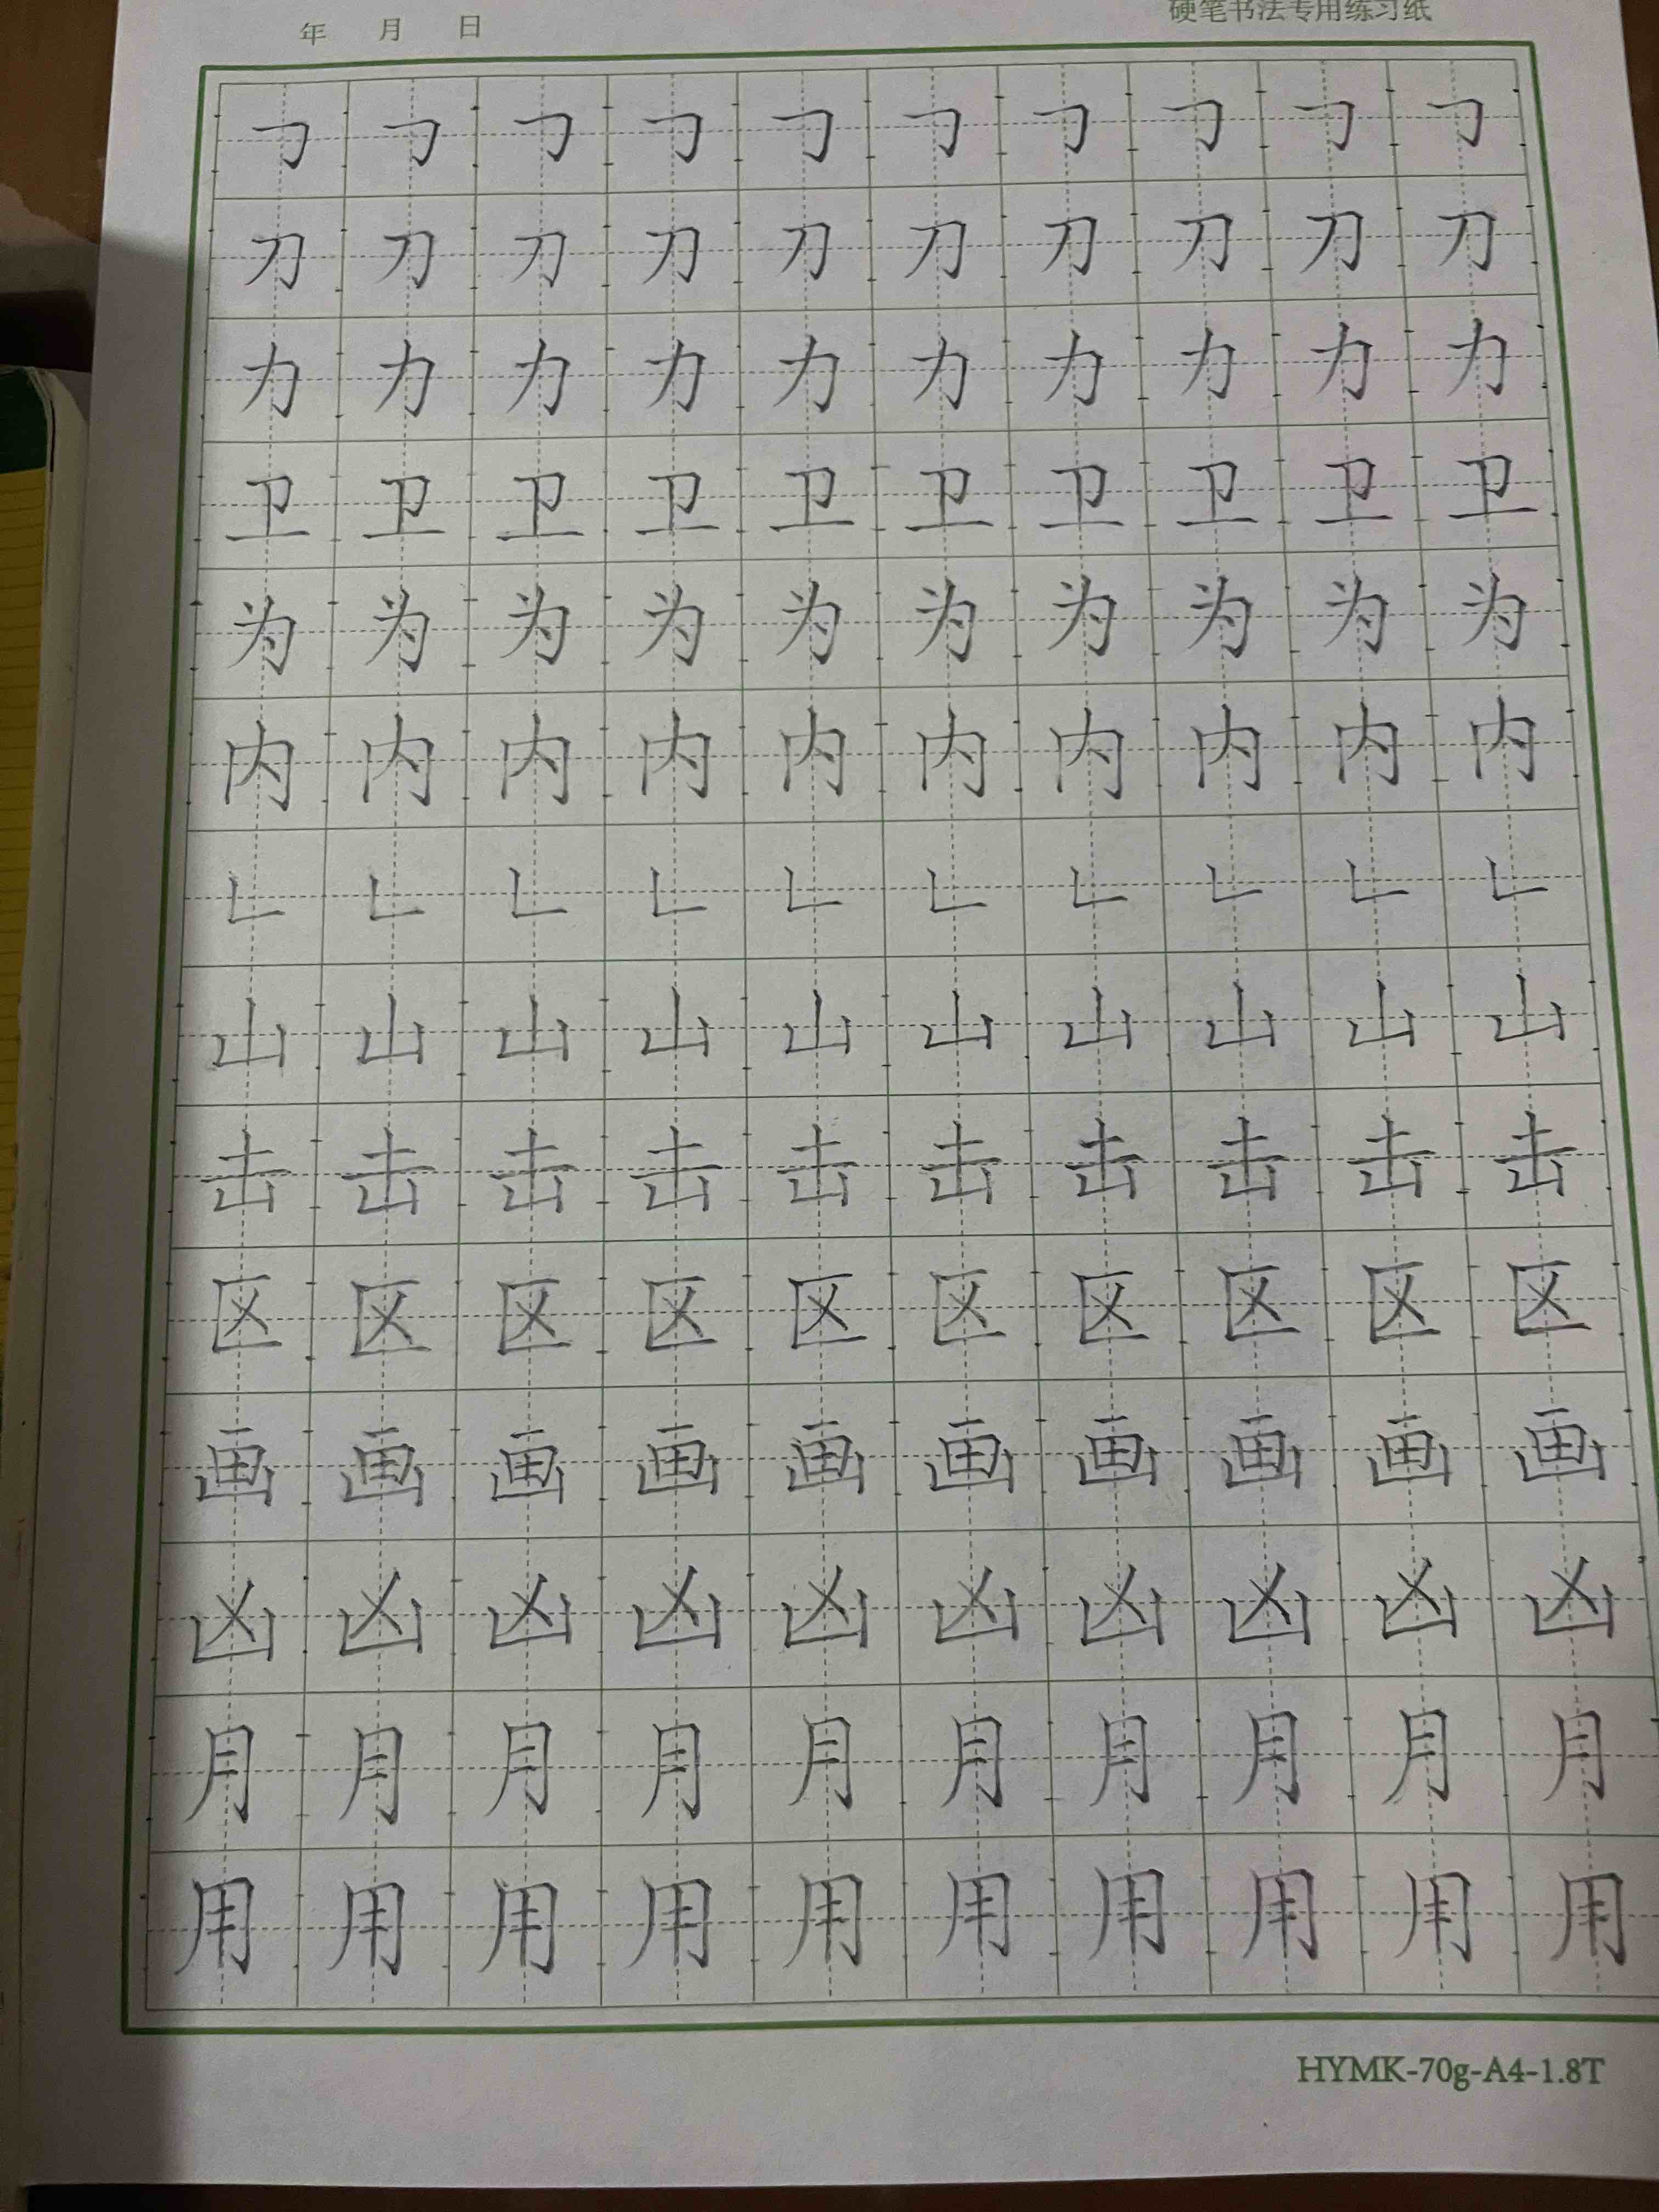 年 月 日 硬笔书法专用练习纸
𠃌 𠃌 𠃌 𠃌 𠃌 𠃌 𠃌 𠃌 𠃌 𠃌
刀 刀 刀 刀 刀 刀 刀 刀 刀 刀
力 力 力 力 力 力 力 力 力 力
卫 卫 卫 卫 卫 卫 卫 卫 卫 卫
为 为 为 为 为 为 为 为 为 为
内 内 内 内 内 内 内 内 内 内
𠃊 𠃊 𠃊 𠃊 𠃊 𠃊 𠃊 𠃊 𠃊 𠃊
山 山 山 山 山 山 山 山 山 山
击 击 击 击 击 击 击 击 击 击
区 区 区 区 区 区 区 区 区 区
画 画 画 画 画 画 画 画 画 画
凶 凶 凶 凶 凶 凶 凶 凶 凶 凶
月 月 月 月 月 月 月 月 月 月
用 用 用 用 用 用 用 用 用 用
HYMK-70g-A4-1.8T